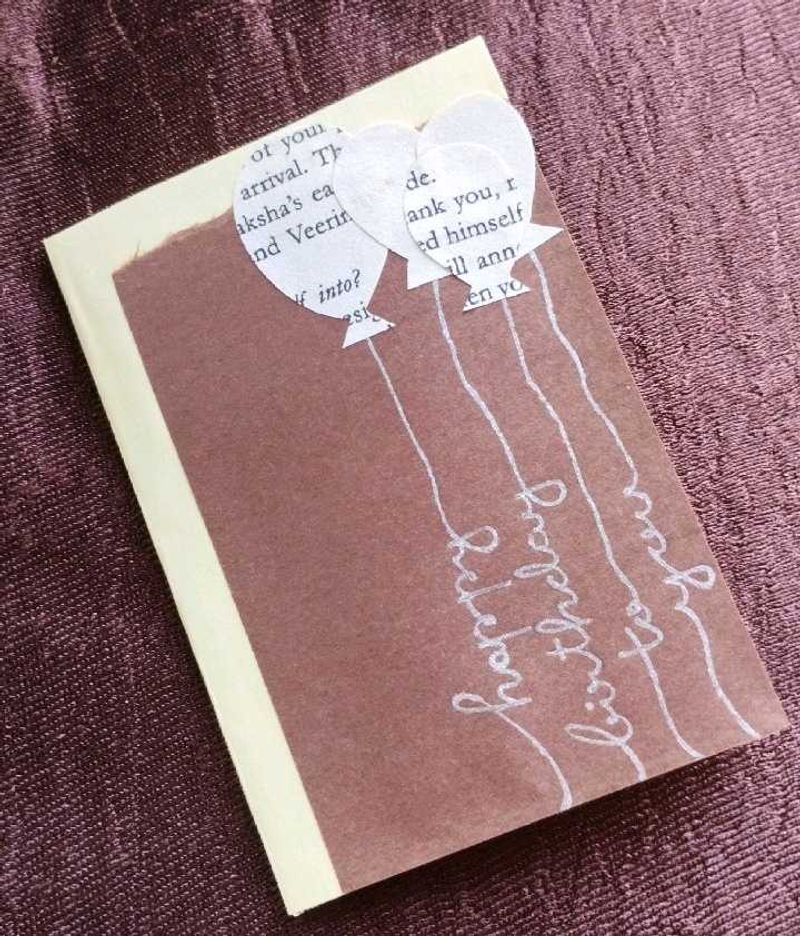 of your
arrival. Th
aksha's ea
nd Veerin
lf into?
esig
de.
ank you, r
ed himself
ill ann
en yo
happy
birthday
to
you